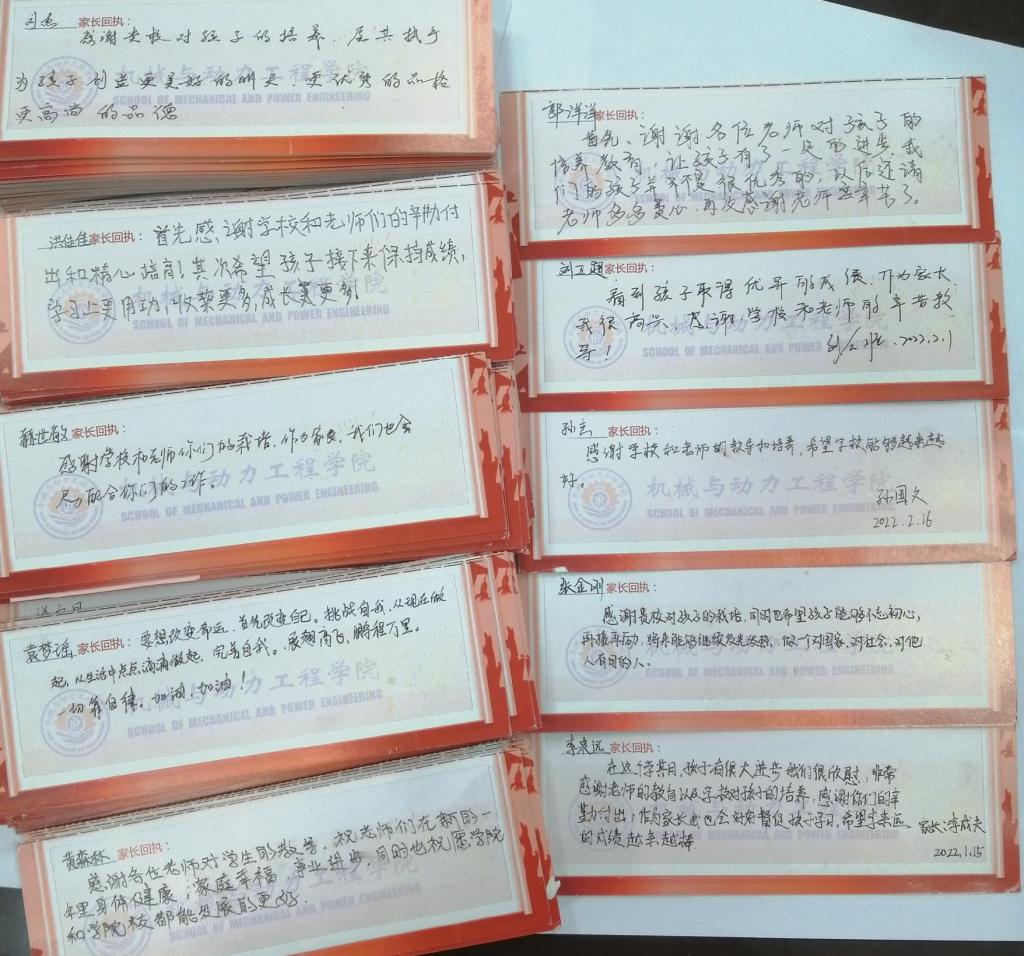 刘杰 家长回执:
感谢贵校对孩子的培养
为孩子 更美好的 更优秀的品格
更高尚的品德
机械与动力工程学院
SCHOOL OF MECHANICAL AND POWER ENGINEERING
洪佳佳 家长回执: 首先感谢学校和老师们的辛勤付
出和精心培育!其次希望孩子接下来保持成绩,
学习上更用功,收获更多,成长更多
机械与动力工程学院
SCHOOL OF MECHANICAL AND POWER ENGINEERING
世敏 家长回执:
感谢学校和老师你们的栽培,作为家长,我们也会
尽力配合你们的工作。
机械与动力工程学院
SCHOOL OF MECHANICAL AND POWER ENGINEERING
袁梦谣 家长回执: 要想改变命运,首先改变自己。挑战自我,从现在做
起,从生活中点点滴滴做起,完善自我。展翅高飞,鹏程万里。
一切靠自律。加油,加油!
机械与动力工程学院
SCHOOL OF MECHANICAL AND POWER ENGINEERING
黄森林 家长回执:
感谢各位老师对学生的教学,祝老师们在新的一
年里身体健康,家庭幸福,事业进步,同时也祝愿学院
和学院校都能发展的更好.
SCHOOL OF MECHANICAL AND POWER ENGINEERING
郭洋洋 家长回执:
首先、谢谢各位老师对孩子的
培养教育,让孩子有了一定的进步,我
们的孩子并不是很优秀的,以后还请
老师多多费心,再次感谢老师您辛苦了。
家长回执:
看到孩子取得优异的成绩,作为家长
我很高兴,感谢学校和老师的辛苦教
导!
2022.2.1
机械与动力工程学院
SCHOOL OF MECHANICAL AND POWER ENGINEERING
孙 家长回执:
感谢学校和老师的教导和培养,希望学校能够越来越
好。
孙国文
2022.2.16
机械与动力工程学院
SCHOOL OF MECHANICAL AND POWER ENGINEERING
张金刚 家长回执:
感谢贵校对孩子的栽培,同时也希望孩子能够不忘初心,
再接再励,将来能够继续发光发热,做一个对国家,对社会,对他
人有用的人。
SCHOOL OF MECHANICAL AND POWER ENGINEERING
李来远 家长回执:
在这个学期,孩子有很大进步我们很欣慰,非常
感谢老师的教育以及学校对孩子的培养,感谢你们的辛
勤付出,作为家长我也会好好督促孩子学习,希望李来远
的成绩越来越棒
家长:李成夫
2022.1.15